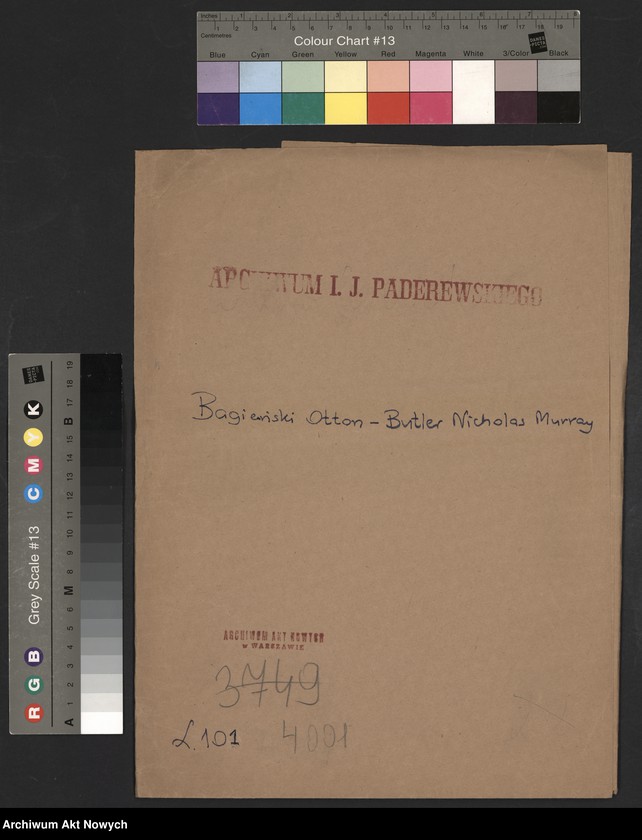 Inches 1 2 3 4 5 6 7 8
Centimetres 1 2 3 4 5 6 7 8 9 10 11 12 13 14 15 16 17 18 19
Colour Chart #13
Blue Cyan Green Yellow Red Magenta White 3/Color Black
ARCHIWUM I. J. PADEREWSKIEGO
Bagieński Otton - Butler Nicholas Murray
ARCHIWUM AKT NOWYCH
W WARSZAWIE
3749
L.101 4001
Grey Scale #13
R G B C M Y K
A 1 2 3 4 5 6 M 8 9 10 11 12 13 14 15 B 17 18 19
Archiwum Akt Nowych